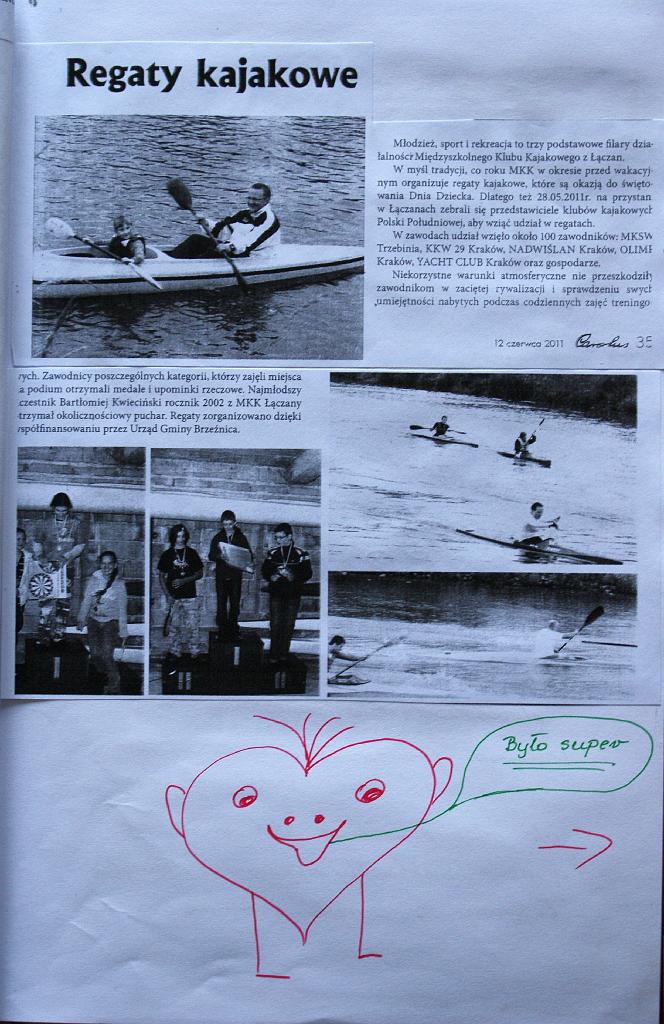 Regaty kajakowe
Młodzież, sport i rekreacja to trzy podstawowe filary dzia-
łalności Międzyszkolnego Klubu Kajakowego z Łączan.
W myśl tradycji, co roku MKK w okresie przed wakacyj-
nym organizuje regaty kajakowe, które są okazją do święto-
wania Dnia Dziecka. Dlatego też 28.05.2011r. na przystan
w Łączanach zebrali się przedstawiciele klubów kajakowych
Polski Południowej, aby wziąć udział w regatach.
W zawodach udział wzięło około 100 zawodników: MKSW
Trzebinia, KKW 29 Kraków, NADWIŚLAN Kraków, OLIMP
Kraków, YACHT CLUB Kraków oraz gospodarze.
Niekorzystne warunki atmosferyczne nie przeszkodziły
zawodnikom w zaciętej rywalizacji i sprawdzeniu swych
umiejętności nabytych podczas codziennych zajęć treningo
12 czerwca 2011 35
rych. Zawodnicy poszczególnych kategorii, którzy zajęli miejsca
a podium otrzymali medale i upominki rzeczowe. Najmłodszy
czestnik Bartłomiej Kwieciński rocznik 2002 z MKK Łączany
trzymał okolicznościowy puchar. Regaty zorganizowano dzięki
współfinansowaniu przez Urząd Gminy Brzeźnica.
Było super